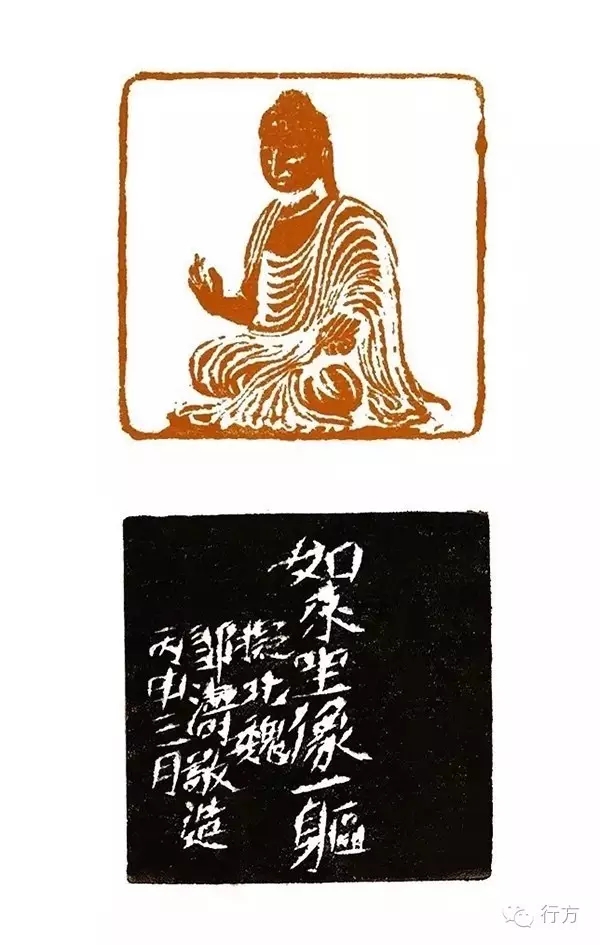 如来坐像一軀
擬北魏
鄒濤敬造
丙申三月
行方